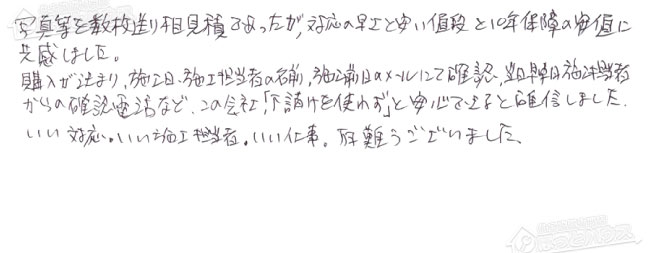 写真等を数枚送り相見積であったが、対応の早さと安い値段と10年保障の安値に
共感しました。
購入が決まり、施工日、施工担当者の名前、施工前日のメールにて確認、当日早朝施工担当者
からの確認電話など、この会社「下請けを使わず」と安心できると確信しました、
いい対応。いい施工担当者。いい仕事。有難うございました、